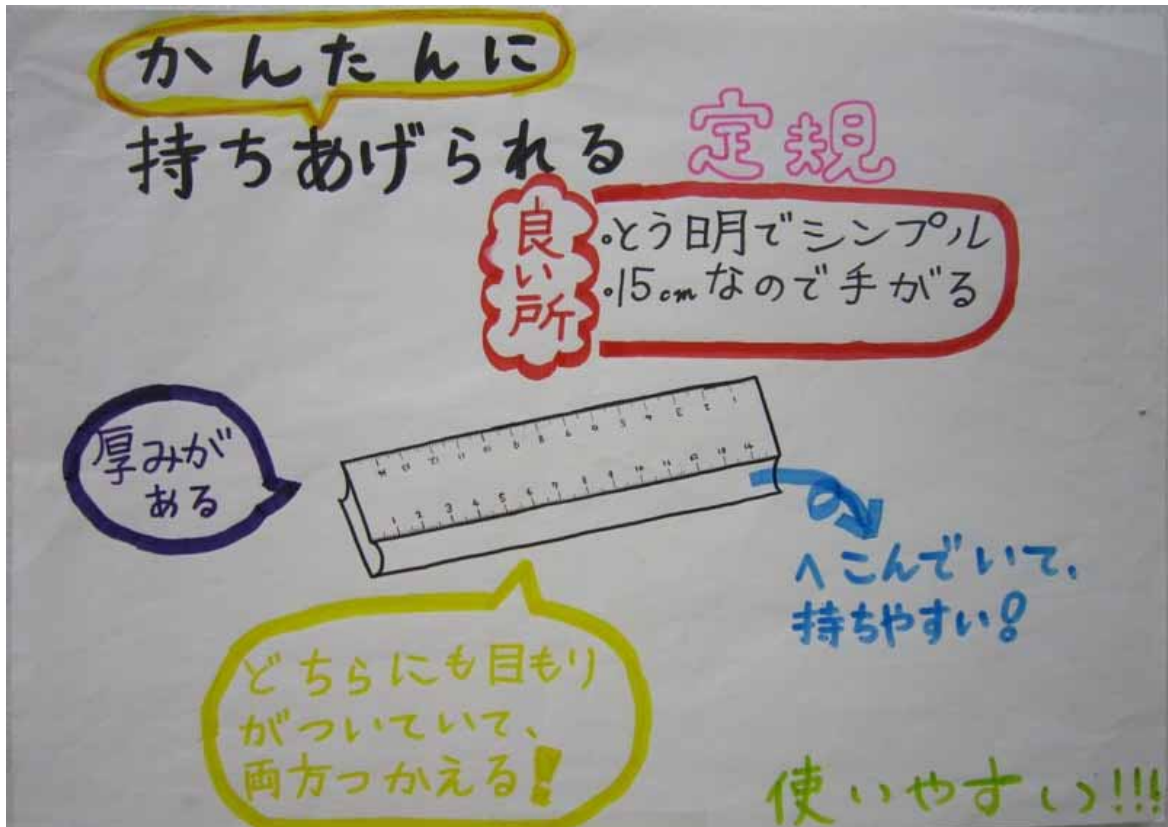 かんたんに
持ちあげられる 定規
良い所
・とう明でシンプル
・15cmなので手がる
厚みが
ある
14 13 12 11 10 9 8 7 6 5 4 3 2 1
1 2 3 4 5 6 7 8 9 10 11 12 13 14
へこんでいて、
持ちやすい!
どちらにも目もり
がついていて、
両方つかえる!
使いやすい!!!